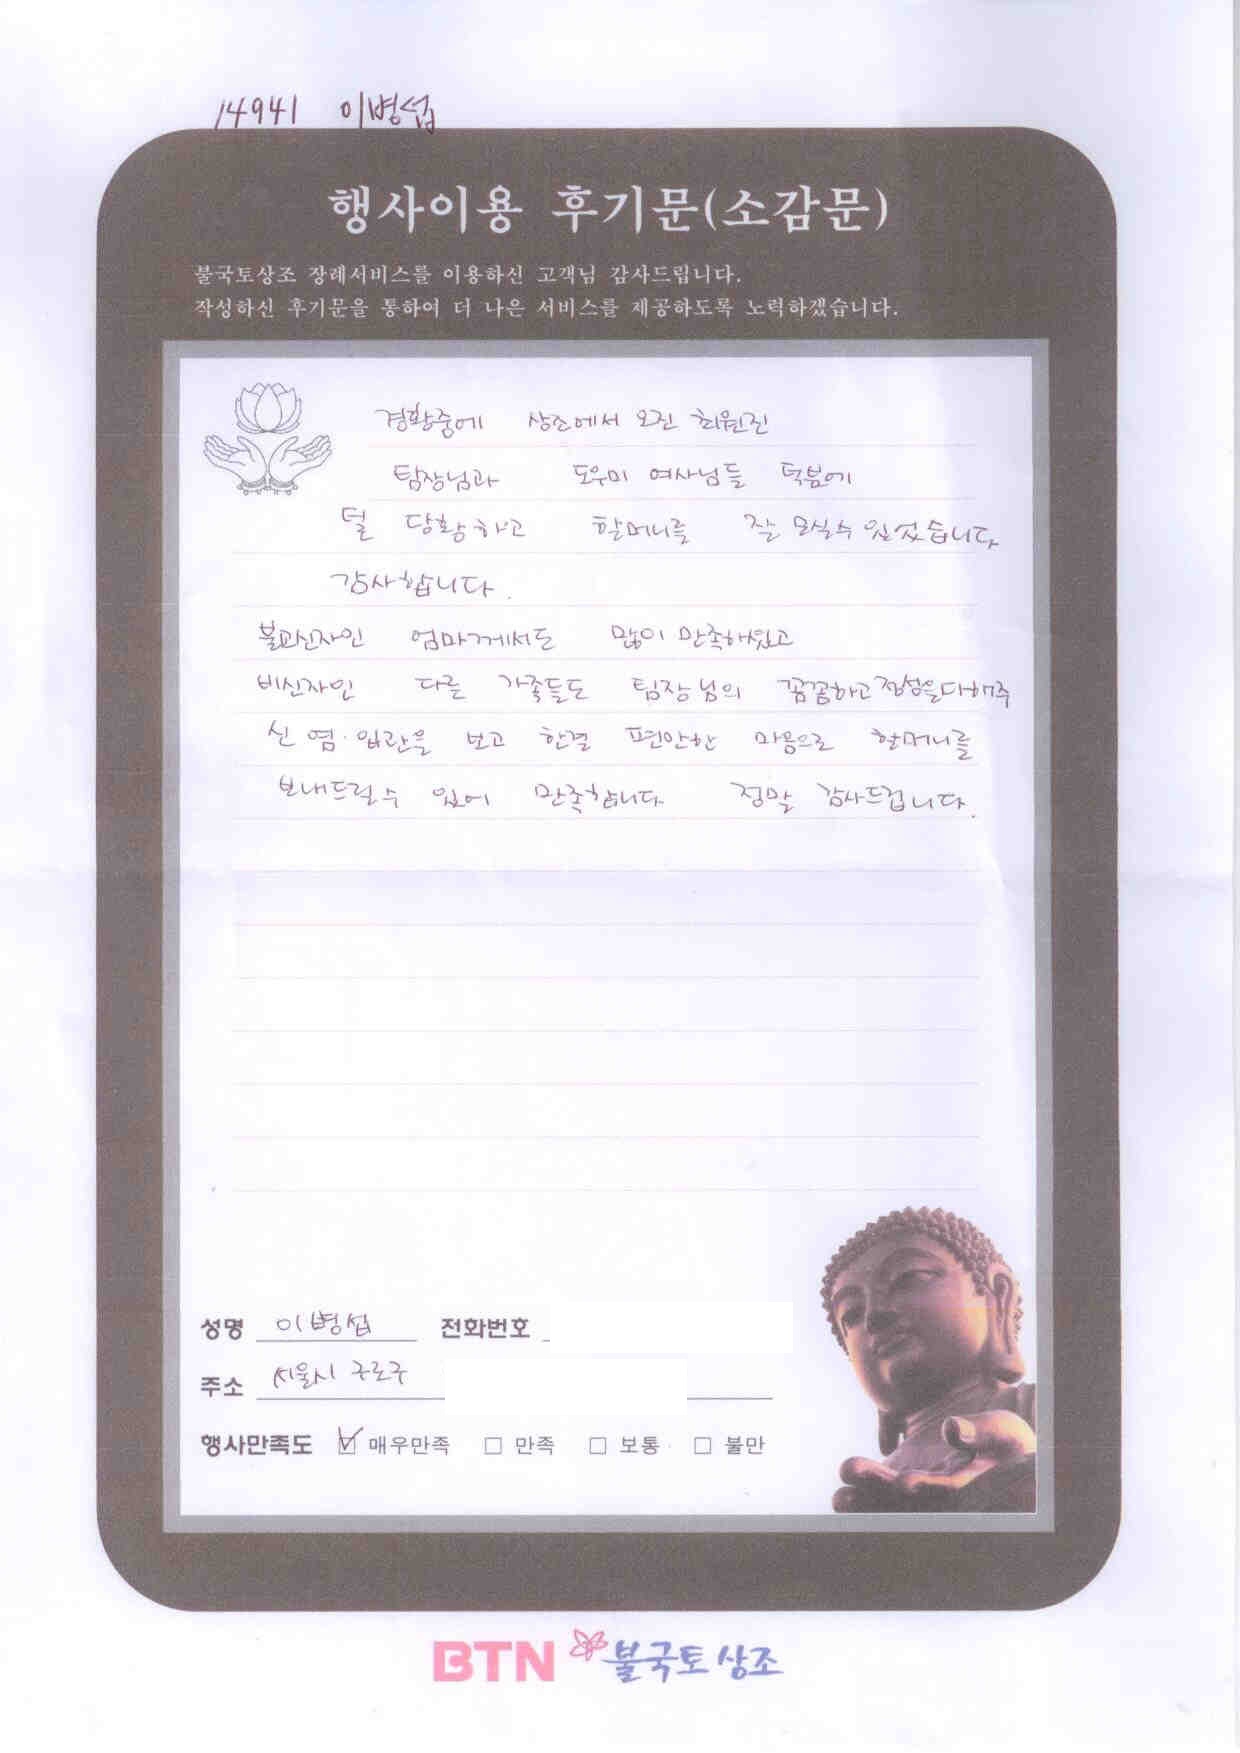 14941 이병섭
행사이용 후기문(소감문)
불국토상조 장례서비스를 이용하신 고객님 감사드립니다.
작성하신 후기문을 통하여 더 나은 서비스를 제공하도록 노력하겠습니다.
경황중에 상조에서 오진 최원진
팀장님과 도우미 여사님들 덕분에
덜 당황하고 할머니를 잘 모실수 있었습니다
감사합니다.
불교신자인 엄마께서도 많이 만족하셨고
비신자인 다른 가족들도 팀장님의 꼼꼼하고 정성을다해주
신 염·입관을 보고 한결 편안한 마음으로 할머니를
보내드릴수 있어 만족합니다 정말 감사드립니다.
성명 이병섭 전화번호
주소 서울시 구로구
행사만족도 ☑ 매우만족 □ 만족 □ 보통 □ 불만
BTN 불국토상조